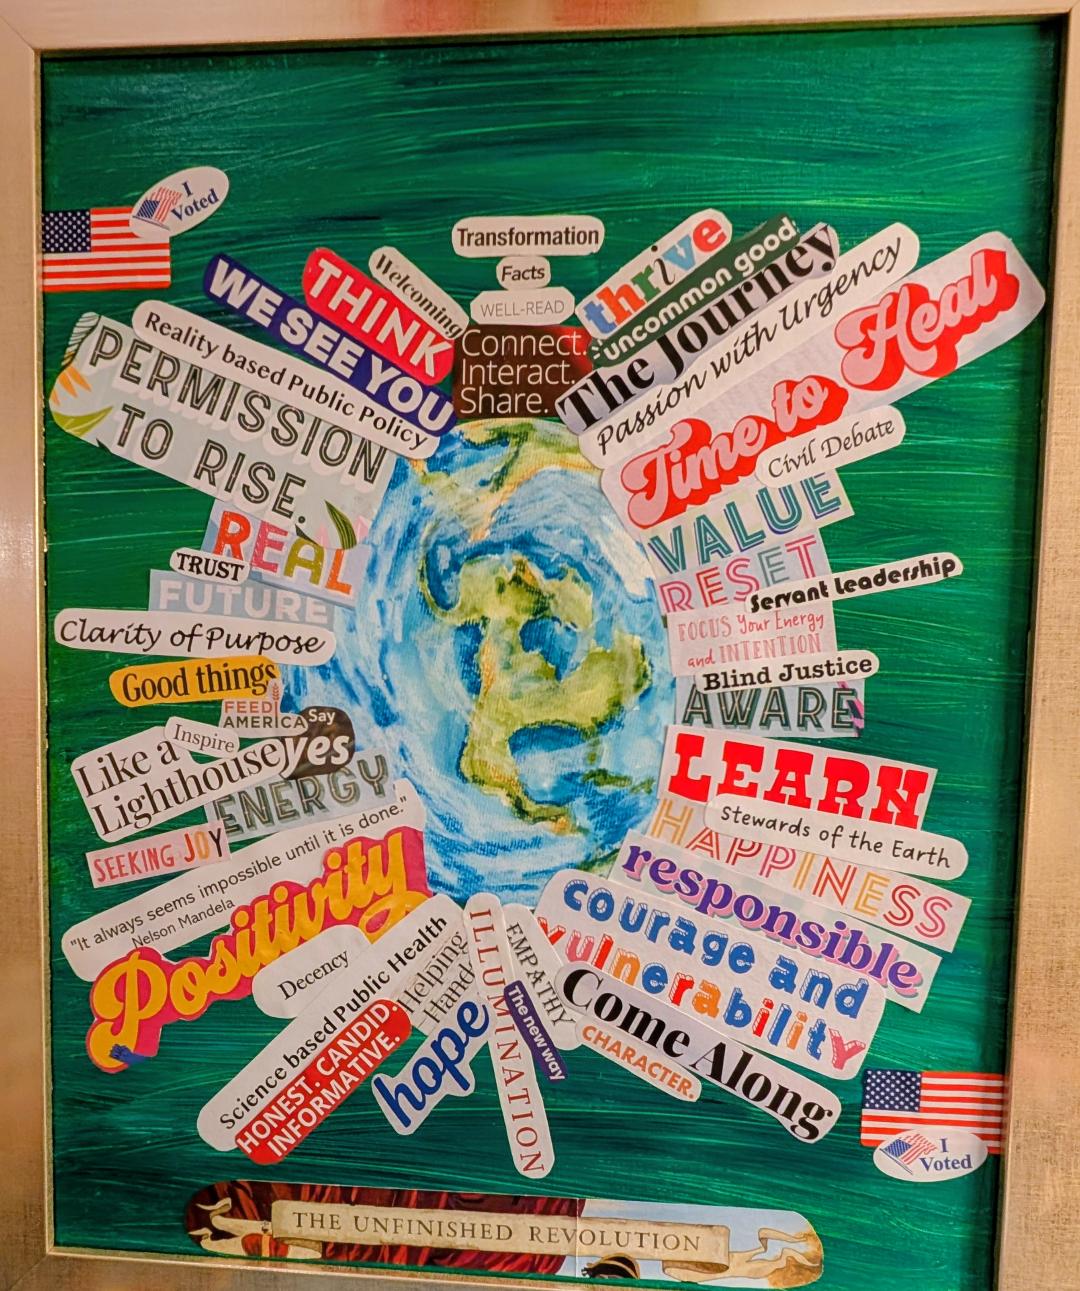 I
Voted
Transformation
Facts
WELL-READ
Connect.
Interact.
Share.
Welcoming
THINK
WE SEE YOU
Reality based Public Policy
PERMISSION
TO RISE.
REAL
TRUST
FUTURE
Clarity of Purpose
Good things
FEED
AMERICA
Say
yes
Inspire
Like a
Lighthouse
ENERGY
SEEKING JOY
"It always seems impossible until it is done."
Nelson Mandela
Positivity
Decency
Science based Public Health
HONEST. CANDID.
INFORMATIVE.
Helping
Hands
hope
ILLUMINATION
EMPATHY
The new way
thrive
uncommon good
The Journey
Passion with Urgency
Time to Heal
Civil Debate
VALUE
RESET
Servant Leadership
FOCUS Your Energy
and INTENTION
Blind Justice
AWARE
LEARN
Stewards of the Earth
HAPPINESS
responsible
courage and
vulnerability
Come Along
CHARACTER.
I
Voted
THE UNFINISHED REVOLUTION